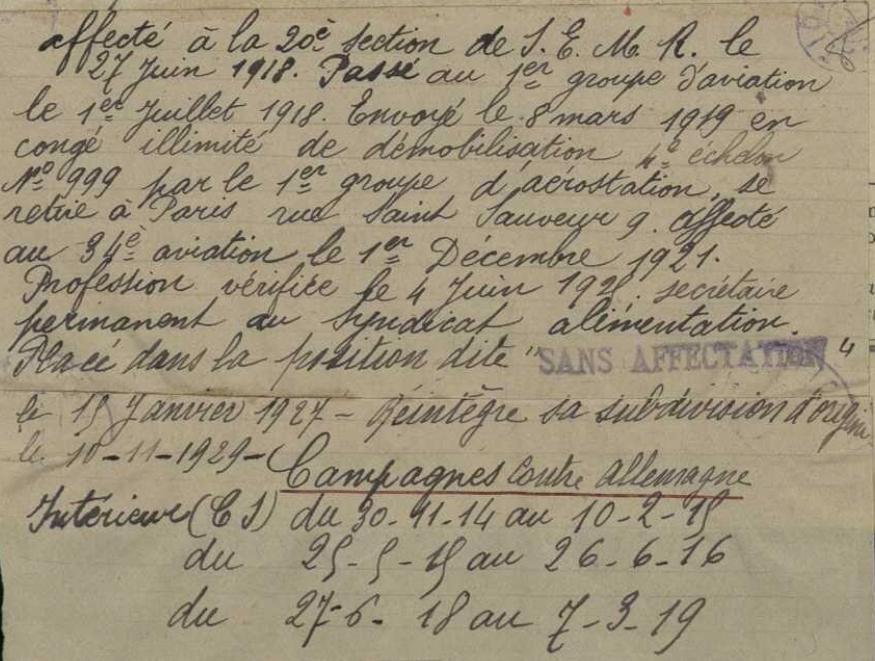 affecté à la 20è section de S. E. M. R. le
27 Juin 1918. Passé au 1er groupe d'aviation
le 1er Juillet 1918. Envoyé le 8 mars 1919 en
congé illimité de démobilisation 4è échelon
No 999 par le 1er groupe d'aérostation, se
retire à Paris rue Saint Sauveur 9. affecté
au 34è aviation le 1er Décembre 1921.
Profession vérifiée le 4 Juin 192 . secrétaire
permanent au Syndicat alimentation.
Placé dans la position dite "SANS AFFECTATION"
le 15 Janvier 1927 - Réintègre sa subdivision d'origine
le 10-11-1929-
Campagnes contre Allemagne
Intérieur (CS) du 30-11-14 au 10-2-15
du 25-5-15 au 26-6-16
du 27-6-18 au 7-3-19